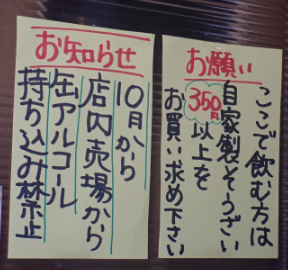 お願い
ここで飲む方は
自家製そうざい
350円以上を
お買い求め下さい
お知らせ
10月から
店内売場から
缶アルコール
持ち込み禁止